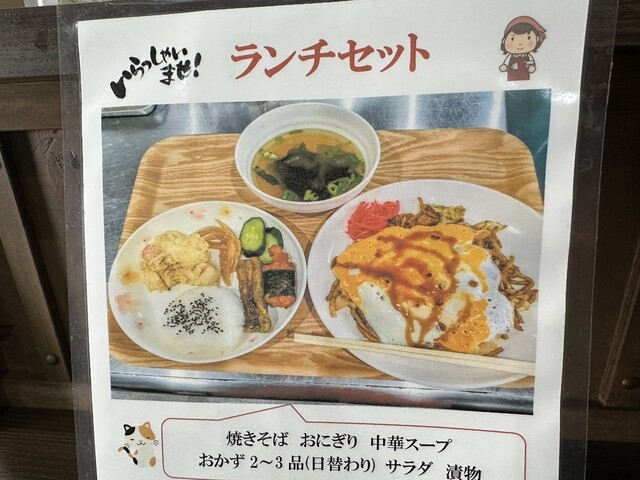 いらっしゃい
ませ!
ランチセット
焼きそば おにぎり 中華スープ
おかず2~3品(日替わり) サラダ 漬物